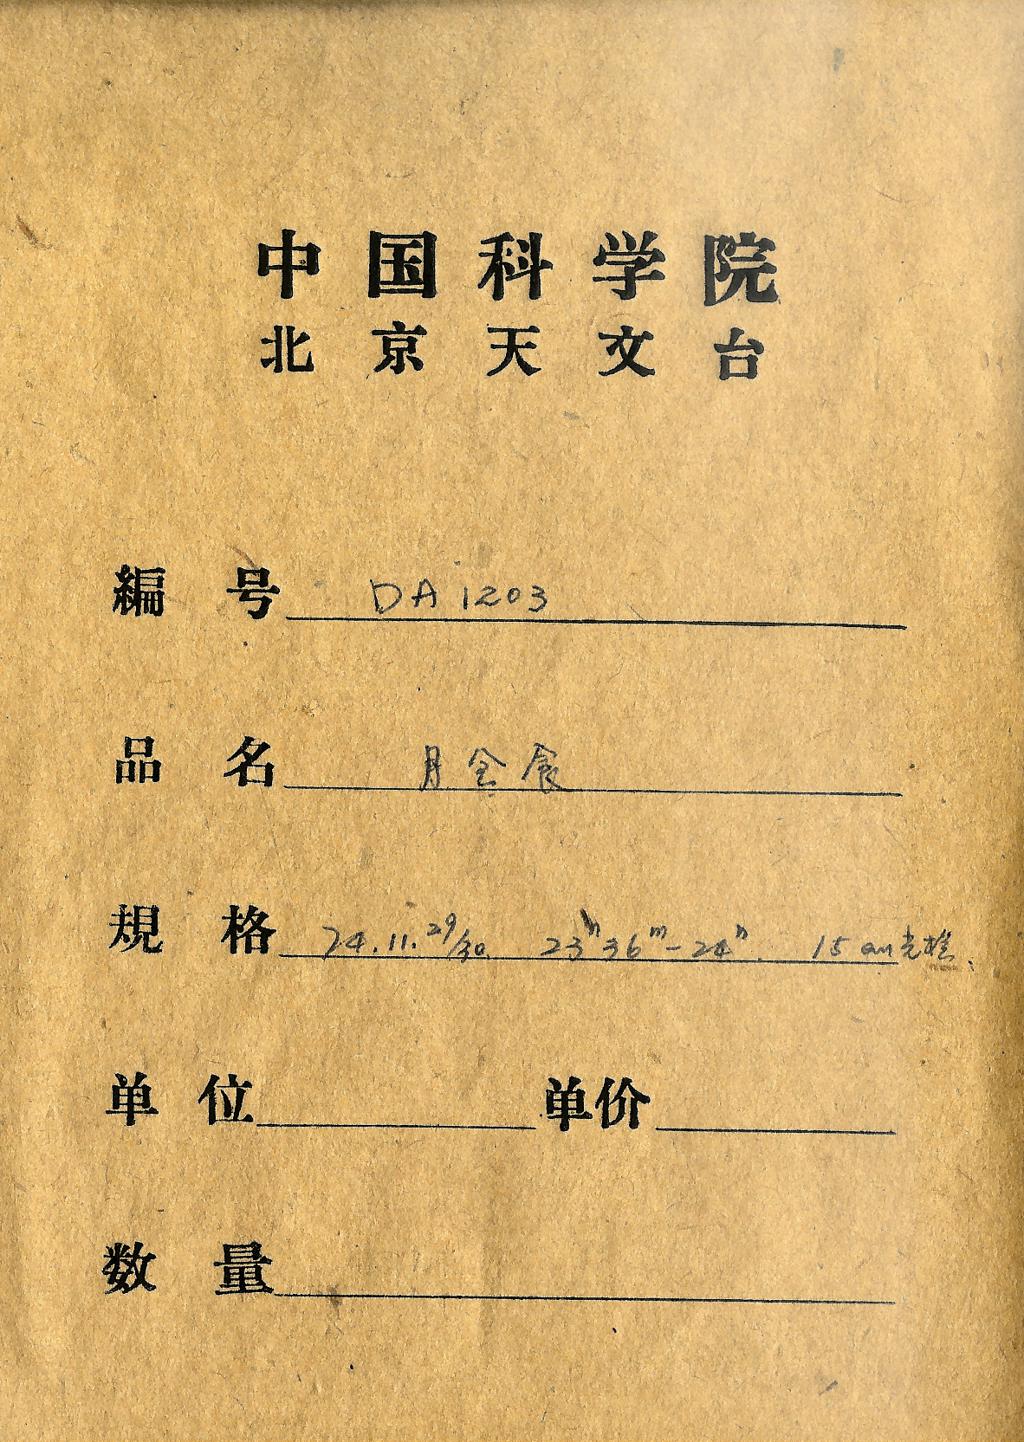 中国科学院
北京天文台
編号 DA 1203
品名 月全食
規格 74.11.29/30 23ʰ36ᵐ-24ʰ. 15 cm
单位 单价
数量